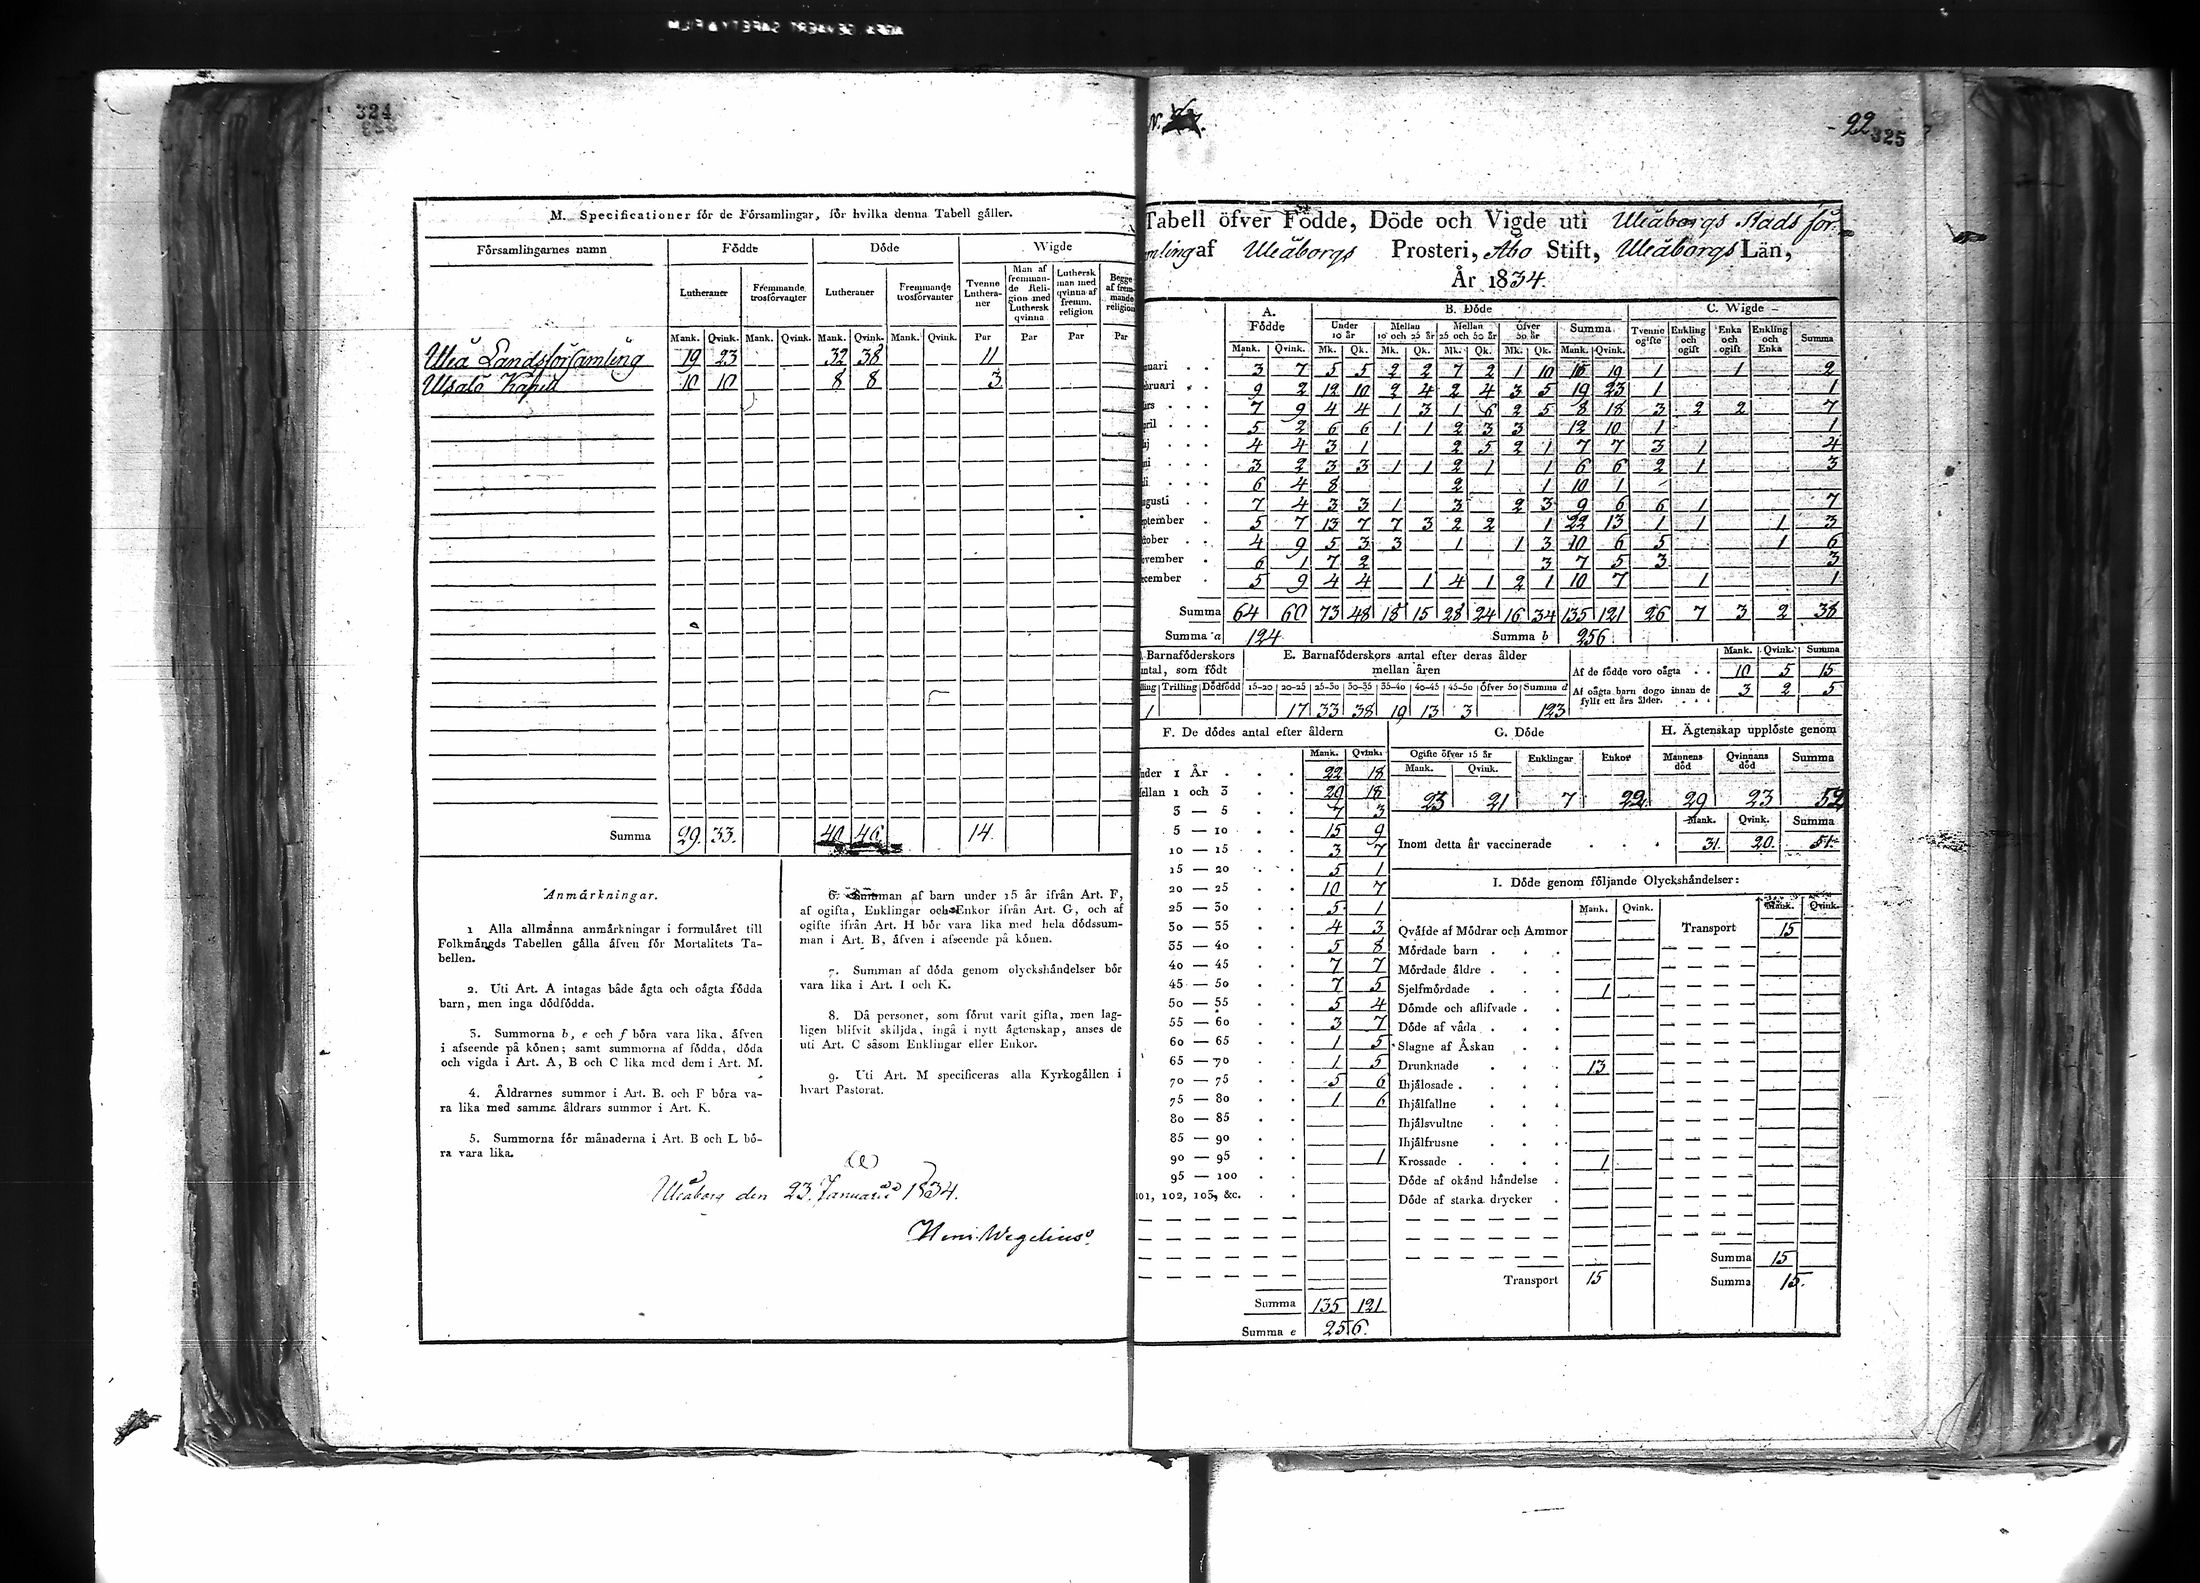 324
M. Specificationer för de Församlingar, för hvilka denna Tabell gäller.
Församlingarnes namn Födde Döde Wigde
Lutheraner Fremmande trosförvanter Lutheraner Fremmande trosförvanter Tvenne Lutheraner Man af fremmande Religion med Luthersk qvinna Luthersk man med qvinna af fremm. religion Begge af fremmande religion
Mank. Qvink. Mank. Qvink. Mank. Qvink. Mank. Qvink. Par Par Par Par
Uleå Landsförsamling 19 23 32 38 11
Ulsalö Kapell 10 10 8 8 3
Summa 29. 33. 40 46 14.
Anmärkningar.
1 Alla allmänna anmärkningar i formuläret till
Folkmängds Tabellen gälla äfven för Mortalitets Ta-
bellen.
2. Uti Art. A intagas både ägta och oägta födda
barn, men inga dödfödda.
3. Summorna b, e och f böra vara lika, äfven
i afseende på könen; samt summorna af födda, döda
och vigda i Art. A, B och C lika med dem i Art. M.
4. Åldrarnes summor i Art. B. och F böra va-
ra lika med samma åldrars summor i Art. K.
5. Summorna för månaderna i Art. B och L bö-
ra vara lika.
6. Summan af barn under 15 år ifrån Art. F,
af ogifta, Enklingar och Enkor ifrån Art. G, och af
ogifte ifrån Art. H bör vara lika med hela dödssum-
man i Art. B, äfven i afseende på könen.
7. Summan af döda genom olyckshändelser bör
vara lika i Art. I och K.
8. Då personer, som förut varit gifta, men lag-
ligen blifvit skiljda, ingå i nytt ägtenskap, anses de
uti Art. C såsom Enklingar eller Enkor.
9. Uti Art. M specificeras alla Kyrkogällen i
hvart Pastorat.
Uleåborg den 23. Januarii 1834.
Henr. Wegelius.
22 325
Tabell öfver Födde, Döde och Vigde uti Uleåborgs Stads för-
mling af Uleåborgs Prosteri, Åbo Stift, Uleåborgs Län,
År 1834.
A. Födde B. Döde C. Wigde
Under 10 år Mellan 10 och 25 år Mellan 25 och 50 år Öfver 50 år Summa Tvenne ogifte Enkling och ogift Enka och ogift Enkling och Enka Summa
Mank. Qvink. Mk. Qk. Mk. Qk. Mk. Qk. Mk. Qk. Mank. Qvink.
nuari 3 7 5 5 2 2 7 2 1 10 15 19 1 1 2
bruari 9 2 12 10 2 4 2 4 3 5 19 23 1 1
rs 7 9 4 4 1 3 1 6 2 5 8 18 3 2 2 7
pril 5 2 6 6 1 1 2 3 3 12 10 1 1
aj 4 4 3 1 2 5 2 1 7 7 3 1 4
ni 3 2 3 3 1 1 2 1 1 6 6 2 1 3
li 6 4 8 2 1 10 1
ugusti 7 4 3 3 1 3 2 3 9 6 6 1 7
ptember 5 7 13 7 7 3 2 2 1 22 13 1 1 1 3
tober 4 9 5 3 3 1 1 3 10 6 5 1 6
vember 6 1 7 2 3 7 5 3 3
cember 5 9 4 4 1 4 1 2 1 10 7 1 1
Summa 64 60 73 48 18 15 28 24 16 34 135 121 26 7 3 2 38
Summa a 124 Summa b 256
Barnaföderskors
antal, som födt
lling Trilling Dödfödd
1
E. Barnaföderskors antal efter deras ålder
mellan åren
15-20 20-25 25-30 30-35 35-40 40-45 45-50 Öfver 50 Summa d
17 33 38 19 13 3 123
Mank. Qvink. Summa
Af de födde voro oägta 10 5 15
Af oägta barn dogo innan de
fyllt ett års ålder. 3 2 5
F. De dödes antal efter åldern
Mank. Qvink.
nder 1 År 22 18
ellan 1 och 3 20 18
3 — 5 7 3
5 — 10 15 9
10 — 15 3 7
15 — 20 5 1
20 — 25 10 7
25 — 30 5 1
30 — 35 4 3
35 — 40 5 8
40 — 45 7 7
45 — 50 7 5
50 — 55 5 4
55 — 60 3 7
60 — 65 1 5
65 — 70 1 5
70 — 75 5 6
75 — 80 1 6
80 — 85
85 — 90
90 — 95 1
95 — 100
101, 102, 103, &c.
Summa 135 121
Summa e 256.
G. Döde
Ogifte öfver 15 år Enklingar Enkor
Mank. Qvink.
23 21 7 22
H. Ägtenskap upplöste genom
Mannens död Qvinnans död Summa
29 23 52
Mank. Qvink. Summa
Inom detta år vaccinerade 31. 20. 51
I. Döde genom följande Olyckshändelser:
Mank. Qvink. Mank. Qvink.
Qväfde af Mödrar och Ammor Transport 15
Mördade barn
Mördade äldre
Sjelfmördade 1
Dömde och aflifvade
Döde af våda
Slagne af Åskan
Drunknade 13
Ihjälosade
Ihjälfallne
Ihjälsvultne
Ihjälfrusne
Krossade 1
Döde af okänd händelse
Döde af starka drycker
Summa 15
Transport 15 Summa 15.